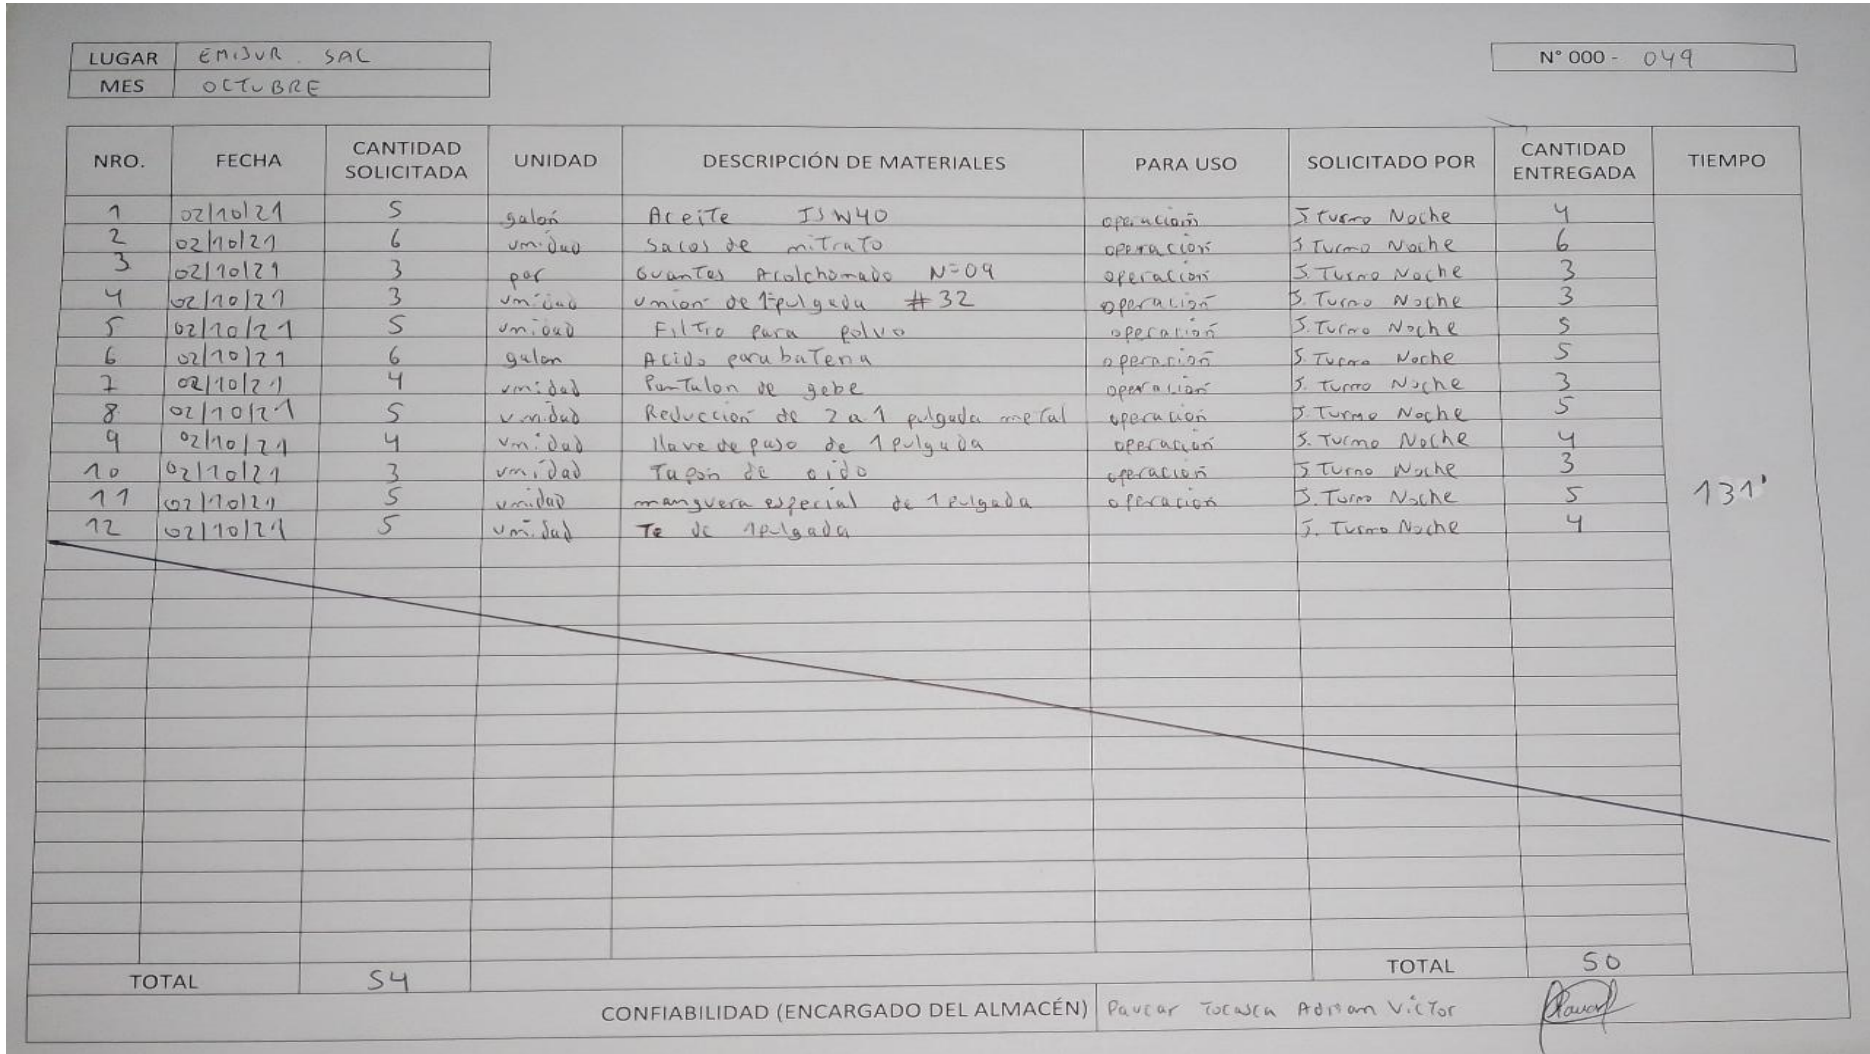 LUGAR EMISUR SAC
N° 000 - 049
MES OCTUBRE
NRO. FECHA CANTIDAD SOLICITADA UNIDAD DESCRIPCIÓN DE MATERIALES PARA USO SOLICITADO POR CANTIDAD ENTREGADA TIEMPO
1 02/10/21 5 galón Aceite 15W40 operación J turno Noche 4
2 02/10/21 6 unidad Sacos de nitrato operación J Turno Noche 6
3 02/10/21 3 par Guantes Acolchonado N=09 operación J. Turno Noche 3
4 02/10/21 3 unidad unión de 1 pulgada #32 operación J. Turno Noche 3
5 02/10/21 5 unidad Filtro para polvo operación J. Turno Noche 5
6 02/10/21 6 galon Acido para bateria operación J. Turno Noche 5
7 02/10/21 4 unidad Pantalon de gebe operación J. Turno Noche 3
8 02/10/21 5 unidad Reducción de 2 a 1 pulgada metal operación J. Turno Noche 5
9 02/10/21 4 unidad llave de paso de 1 pulgada operación J. Turno Noche 4
10 02/10/21 3 unidad Tapón de oido operación J Turno Noche 3
11 02/10/21 5 unidad manguera especial de 1 pulgada operación J. Turno Noche 5 131'
12 02/10/21 5 unidad Te de 1pulgada J. Turno Noche 4
TOTAL 54 TOTAL 50
CONFIABILIDAD (ENCARGADO DEL ALMACÉN) Paucar Adrian Victor